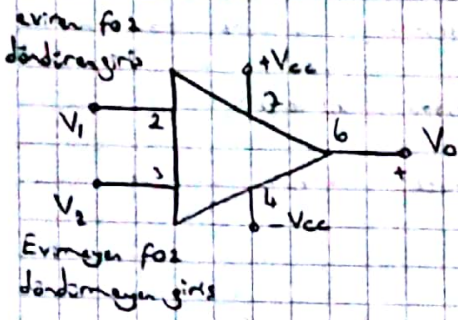 eviren faz
döndüren giriş
+Vcc
7
V1
2
6
V0
+
3
V2
4
-Vcc
Evirmeyen faz
döndürmeyen giriş